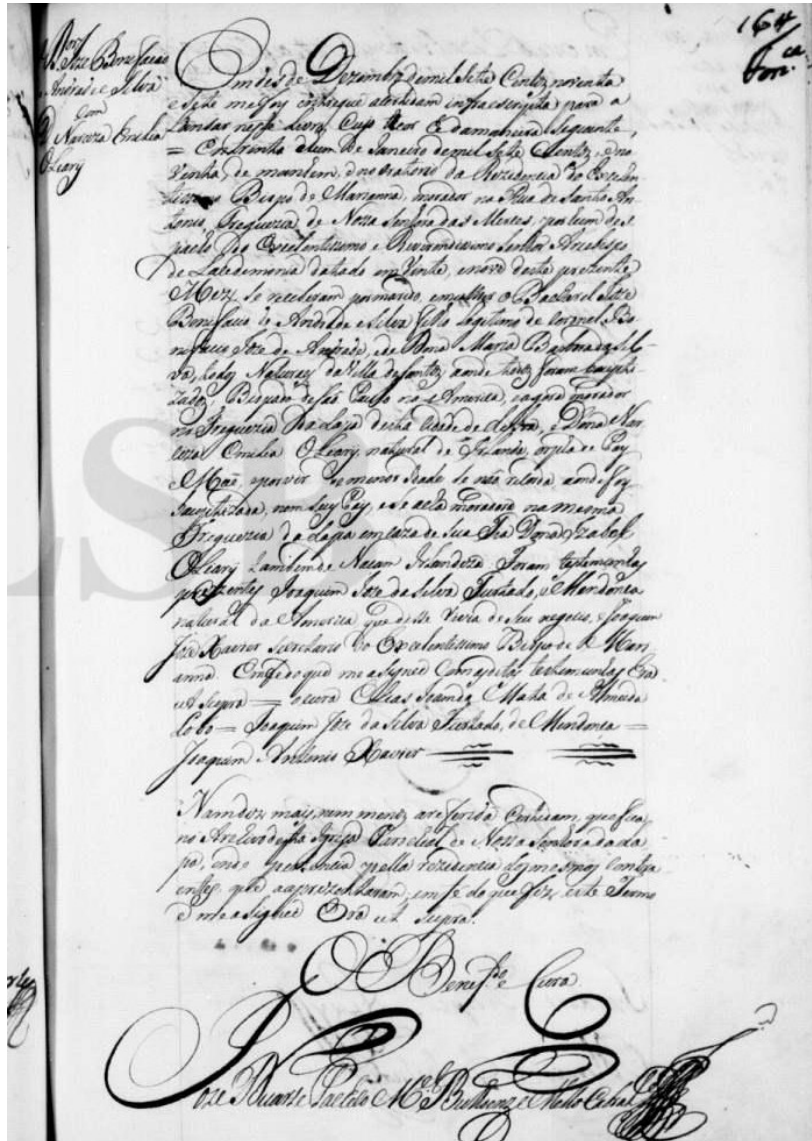 164
D.or Joze Bonefacio
de Andrade e Silva
com
D. Narciza Emilia
OLeary
Em des de Dezembr. de mil Sete Centoz noventa
e Sete me foy entregue a certidam infra escripta para a
Lansar neste Livro, Cujo theor he da maneira Seguinte,
= Em trinta e hum de Janeiro de mil Sete Centoz, e no
venta, de manham, no oratorio da Rezidencia do Excelen
tissimo Bispo de Marianna, morador na Rua de Santo An
tonio, Freguezia de Nossa Senhora das Merces, por hum des
pacho do Excelentissimo e Reverendissimo Senhor Arcebispo
de Lacedemonia datado em Vinte, e nove deste prezente
Mez, se receberam por marido, e mulher o Bacharel Joze
Bonefacio de Andrade e Silva filho Legitimo do Coronel Bo
nefacio Joze de Andrade, e de Dona Maria Barbara da Sil-
va, todoz Naturaes da Villa de Santoz, aonde todoz foram bapti
zadoz Bispado de Sam Paulo na America, e agora morador
na Freguezia da Lapa desta Cidade de Lisboa, e Dona Nar
ciza Emilia OLeary, natural de Irlanda, orfa de Pay
e Mae, e por vir de menor idade se não recorda, aonde foy
bauptizada, nem seus Pays, e se acha moradora na mesma
Freguezia da Lapa em caza de sua Tia Dona Izabel
OLeary tambem de Nacam Irlandeza. Foram testemunhas
prezentes Joaquim Joze da Silva Furtado, de Mendonca
natural da America que disse vivia de seu negocio, e Joaquim
Joze Xavier secretario do Excelentissimo Bispo de Mari
anna. Em fe do que me asignei Com as ditas testemunhas Era
ut supra = o cura Elias Maria de Almeida
Lobo = Joaquim Joze da Silva Furtado, de Mendonca =
Joaquim Antonio Xavier
Nam dizia mais, nem menos a referida Certidam, que fica
no Archivo desta Igreja Parochial de Nossa Senhora da La
pa, onde pertencia pella rezidencia dos mesmos contra
entes, que a aprezentaram, em fe do que fiz este Termo
e me asignei Era ut supra.
O Benef.do Cura
Joze Duarte M.el e Mello Cabral